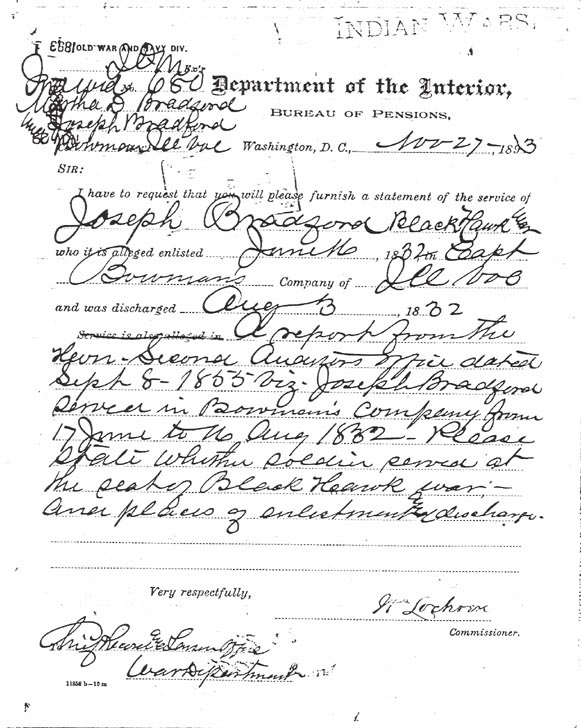 INDIAN WARS.
OLD WAR AND NAVY DIV.
Ex'r
No. 680 Department of the Interior,
Martha D. Bradford
BUREAU OF PENSIONS,
Joseph Bradford
Bowman Ill Vol Washington, D. C., Nov 27 - 1893
SIR:
I have to request that you will please furnish a statement of the service of
Joseph Bradford Black Hawk War
who it is alleged enlisted June 16, 1832 in Capt
Bowman's Company of Ill Vol
and was discharged Aug 3, 1832
Service is also alleged in A report from the
Hon. Second Auditors office dated
Sept 8 - 1855 viz - Joseph Bradford
served in Bowman's Company from
17 June to 16 Aug 1832 - Please
State whether soldier served at
the seat of Black Hawk war -
and places of enlistment & discharge.
Very respectfully,
Wm Lochren
Commissioner.
Chief Record & Pension Office
War Department